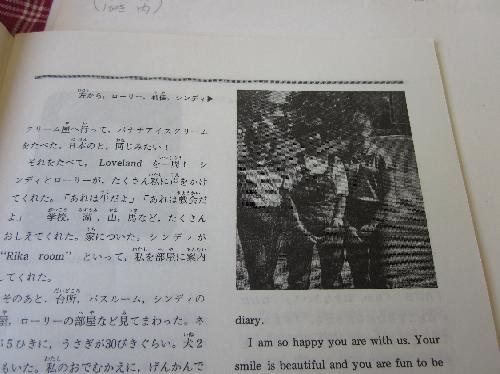 左から，ローリー，利佳，シンディ▶
クリーム屋へ行って，バナナアイスクリーム
をたべた。日本のと，同じみたい！
それをたべて，Loveland を一周！ シ
ンディとローリーが，たくさん私に声をかけ
てくれた。「あれは牛だよ」「あれは教会だ
よ」 学校，湖，山，馬など，たくさん
おしえてくれた。家についた。シンディが
"Rika room" といって，私を部屋に案内
してくれた。
そのあと，台所，バスルーム，シンディの
屋，ローリーの部屋など見てまわった。ネ
が5ひきに，うさぎが30ぴきぐらい。犬2
もいた。私のおでむかえに，げんかんで
diary.
I am so happy you are with us. Your
smile is beautiful and you are fun to be